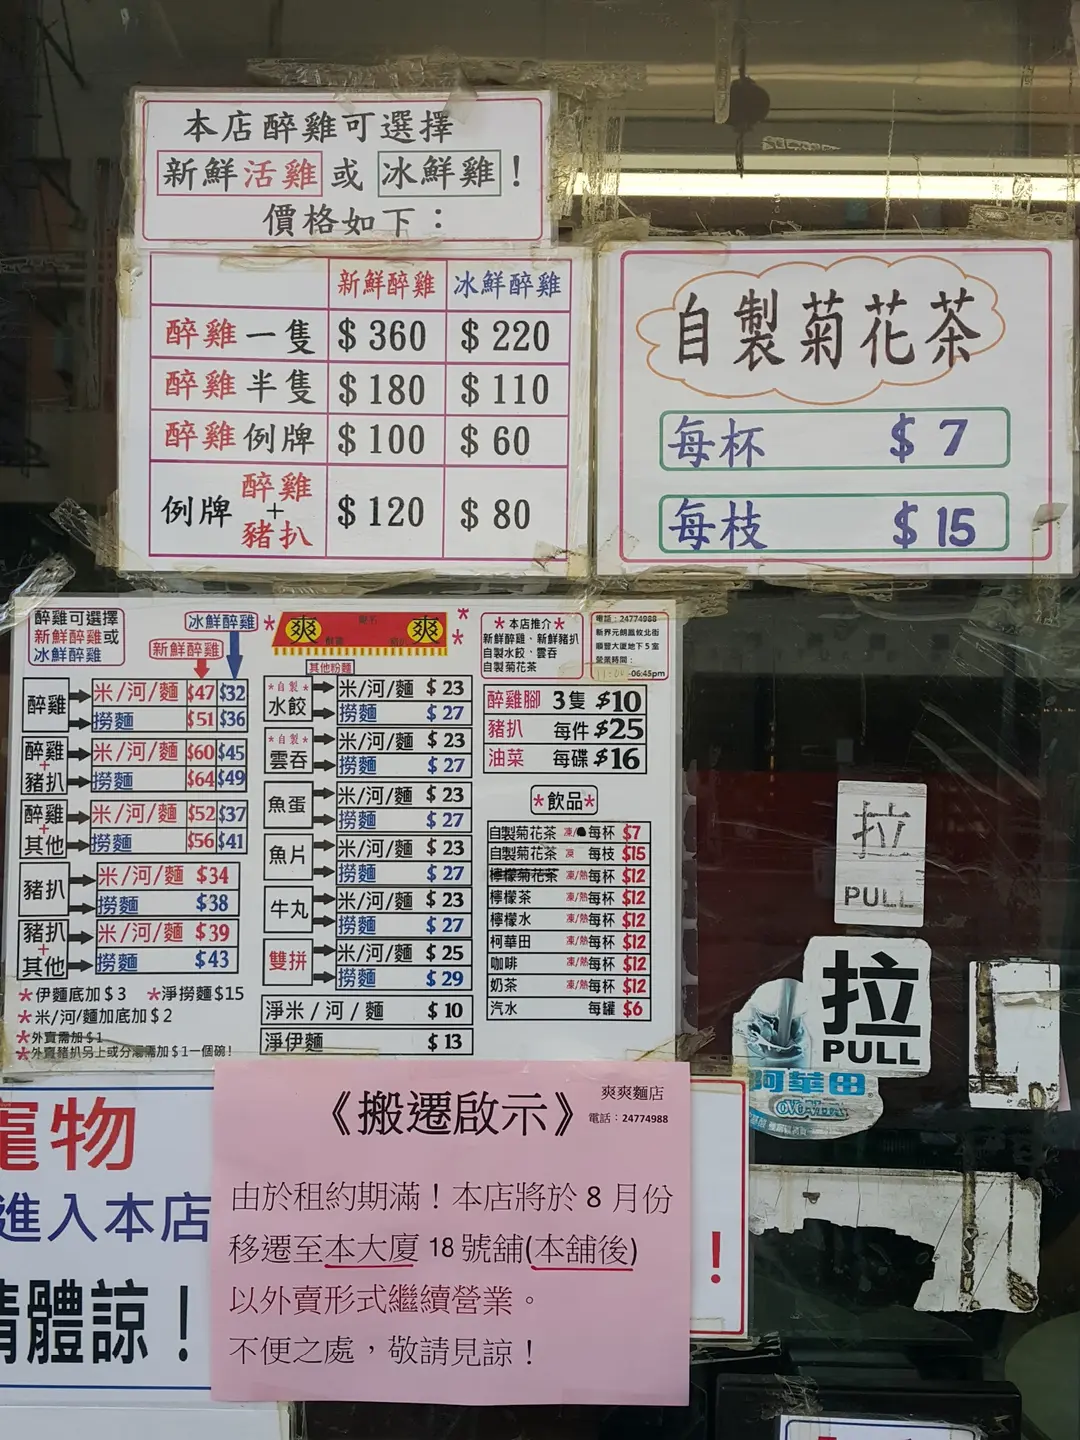 本店醉雞可選擇
新鮮活雞或冰鮮雞！
價格如下：
新鮮醉雞 冰鮮醉雞
醉雞一隻 $360 $220
醉雞半隻 $180 $110
醉雞例牌 $100 $60
例牌 醉雞+豬扒 $120 $80
自製菊花茶
每杯 $7
每枝 $15
醉雞可選擇
新鮮醉雞或
冰鮮醉雞
冰鮮醉雞
新鮮醉雞
醉雞 米/河/麵 $47 $32
撈麵 $51 $36
醉雞+豬扒 米/河/麵 $60 $45
撈麵 $64 $49
醉雞+其他 米/河/麵 $52 $37
撈麵 $56 $41
豬扒 米/河/麵 $34
撈麵 $38
豬扒+其他 米/河/麵 $39
撈麵 $43
*伊麵底加$3 *淨撈麵$15
*米/河/麵加底加$2
*外賣需加$1
*外賣豬扒另上或分湯需加$1一個碗!
爽 爽
其他粉麵
*自製* 水餃 米/河/麵 $23
撈麵 $27
*自製* 雲吞 米/河/麵 $23
撈麵 $27
魚蛋 米/河/麵 $23
撈麵 $27
魚片 米/河/麵 $23
撈麵 $27
牛丸 米/河/麵 $23
撈麵 $27
雙拼 米/河/麵 $25
撈麵 $29
淨米/河/麵 $10
淨伊麵 $13
*本店推介*
新鮮醉雞、新鮮豬扒
自製水餃、雲吞
自製菊花茶
電話：24774988
新界元朗鳳攸北街
順豐大廈地下5室
營業時間：
-06:45pm
醉雞腳 3隻 $10
豬扒 每件 $25
油菜 每碟 $16
*飲品*
自製菊花茶 凍/ 每杯 $7
自製菊花茶 凍 每枝 $15
檸檬菊花茶 凍/熱 每杯 $12
檸檬茶 凍/熱 每杯 $12
檸檬水 凍/熱 每杯 $12
柯華田 凍/熱 每杯 $12
咖啡 凍/熱 每杯 $12
奶茶 凍/熱 每杯 $12
汽水 每罐 $6
拉
PULL
拉
PULL
阿華田
Ovaltine
寵物
進入本店
請體諒！
！
《搬遷啟示》
爽爽麵店
電話：24774988
由於租約期滿！本店將於8月份
移遷至本大廈18號舖(本舖後)
以外賣形式繼續營業。
不便之處，敬請見諒！